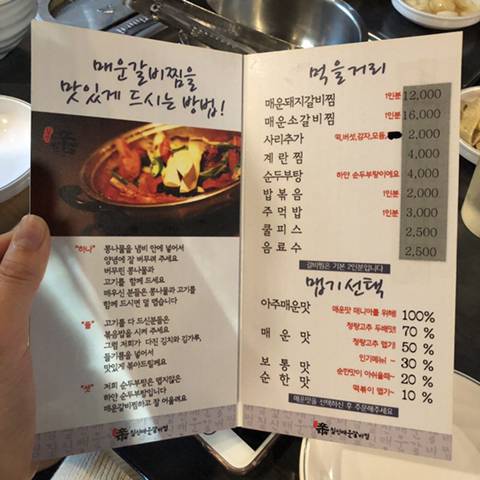 매운갈비찜을
맛있게 드시는 방법!
"하나"
콩나물을 냄비 안에 넣어서
양념에 잘 버무려 주세요
버무린 콩나물과
고기를 함께 드세요
매우신 분들은 콩나물과 고기를
함께 드시면 덜 맵습니다
"둘"
고기를 다 드신분들은
볶음밥을 시켜 주세요
그럼 저희가 다진 김치와 김가루,
들기름을 넣어서
맛있게 볶아드릴께요
"셋"
저희 순두부탕은 맵지않은
하얀 순두부탕입니다
매운갈비찜하고 잘 어울려요
먹을거리
매운돼지갈비찜 1인분 12,000
매운소갈비찜 1인분 16,000
사리추가 떡,버섯,감자,모듬, 2,000
계란찜 4,000
순두부탕 하얀 순두부탕이에요 4,000
밥볶음 1인분 2,000
주먹밥 1인분 3,000
쿨피스 2,500
음료수 2,500
갈비찜은 기본 2인분입니다
맵기선택
아주매운맛 매운맛 매니아를 위해! 100%
청량고추 두배맛! 70 %
매운맛 청량고추 맵기! 50 %
보통맛 인기메뉴! ~ 30 %
순한맛 순한맛이 아쉬울때~ 20 %
떡볶이 맵기~ 10 %
매운맛을 선택하신 후 주문해주세요